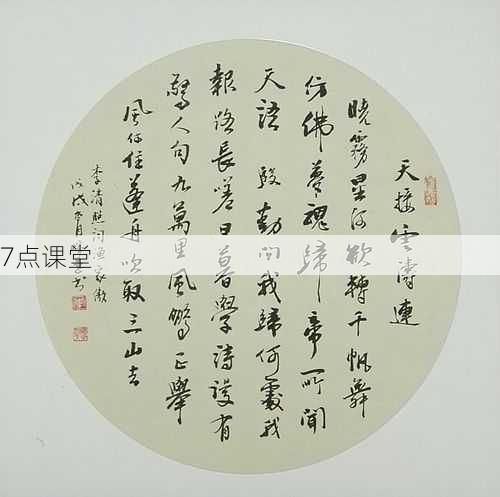 天接雲濤連
曉霧星河欲轉千帆舞
仿佛夢魂歸帝所聞
天語殷勤問我歸何處我
報路長嗟日暮學詩謾有
驚人句九萬里風鵬正舉
風休住蓬舟吹取三山去
李清照詞漁家傲
戊戌月書
7点课堂